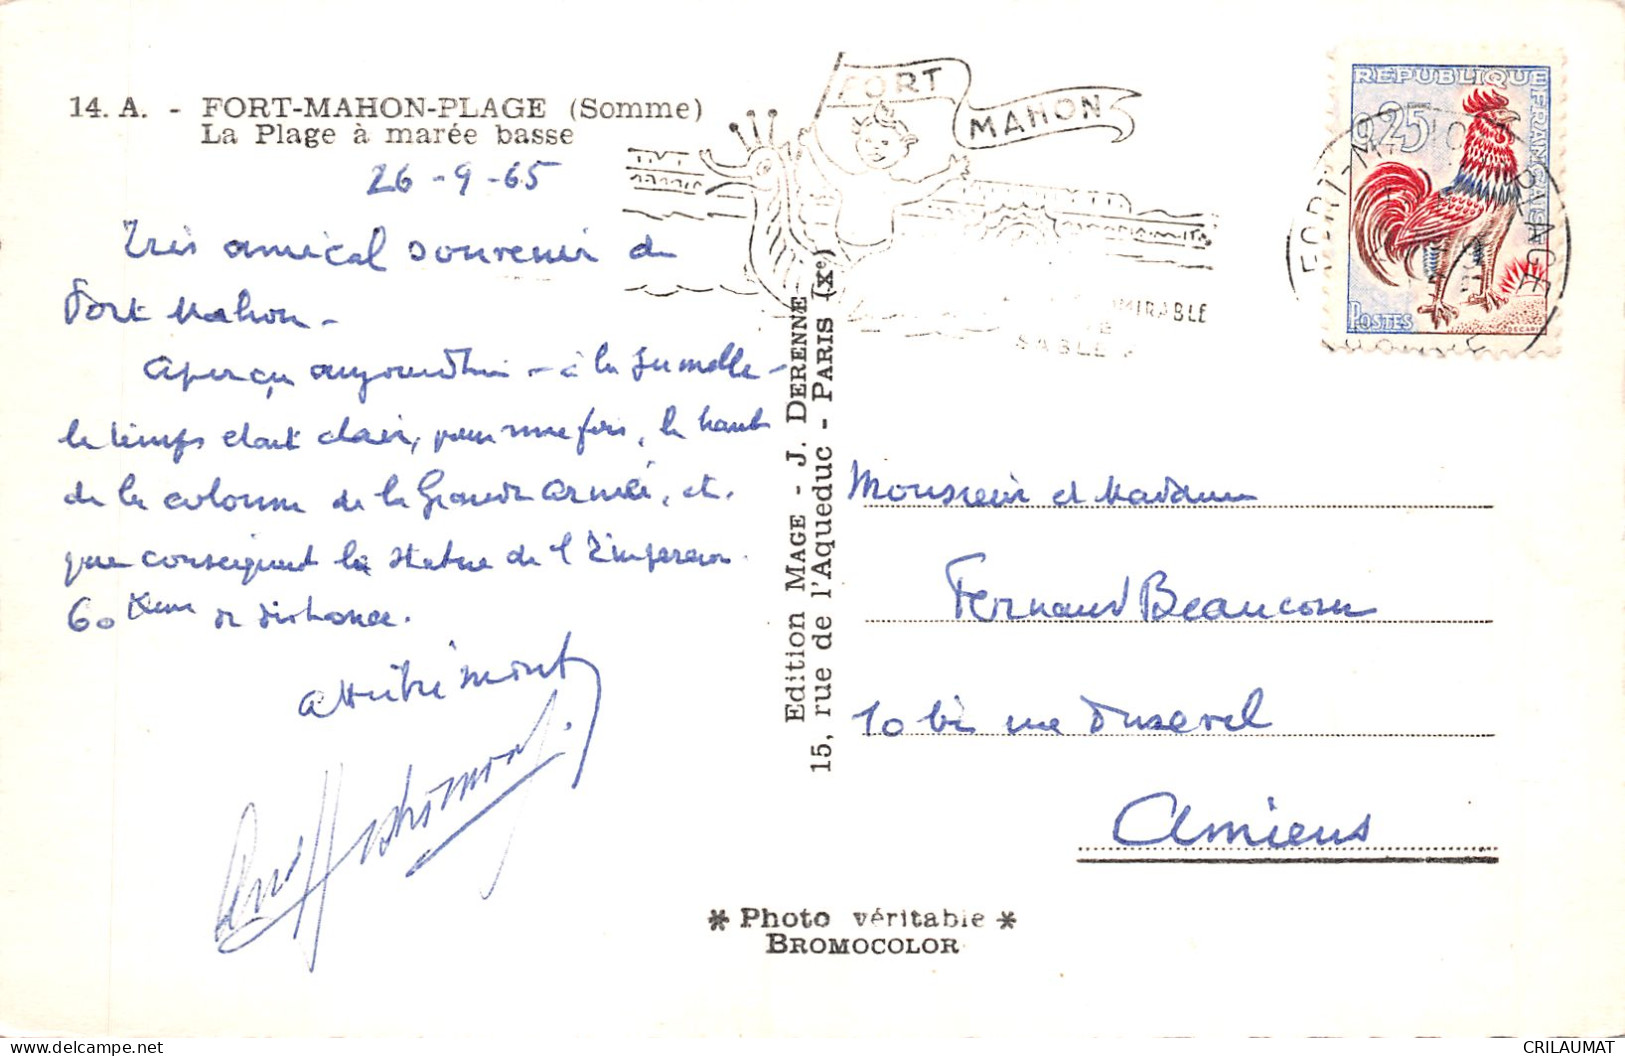 14. A. - FORT-MAHON-PLAGE (Somme)
La Plage à marée basse
26-9-65
Très amical souvenir de
Fort Mahon -
Aperçu aujourd'hui - à la jumelle -
le temps était clair, pour une fois, le haut
de la colonne de la Grande Armée, et
par conséquent la statue de l'Empereur
60 Kms de distance.
FORT MAHON
MIRABLE
SABLE
Edition MAGE - J. DERENNE
15, rue de l'Aqueduc - PARIS (Xe)
REPUBLIQUE FRANÇAISE
0,25
POSTES
Monsieur et Madame
Fernand Beaucour
10 bis rue Dusevel
Amiens
* Photo véritable *
BROMOCOLOR
delcampe.net
CRILAUMAT